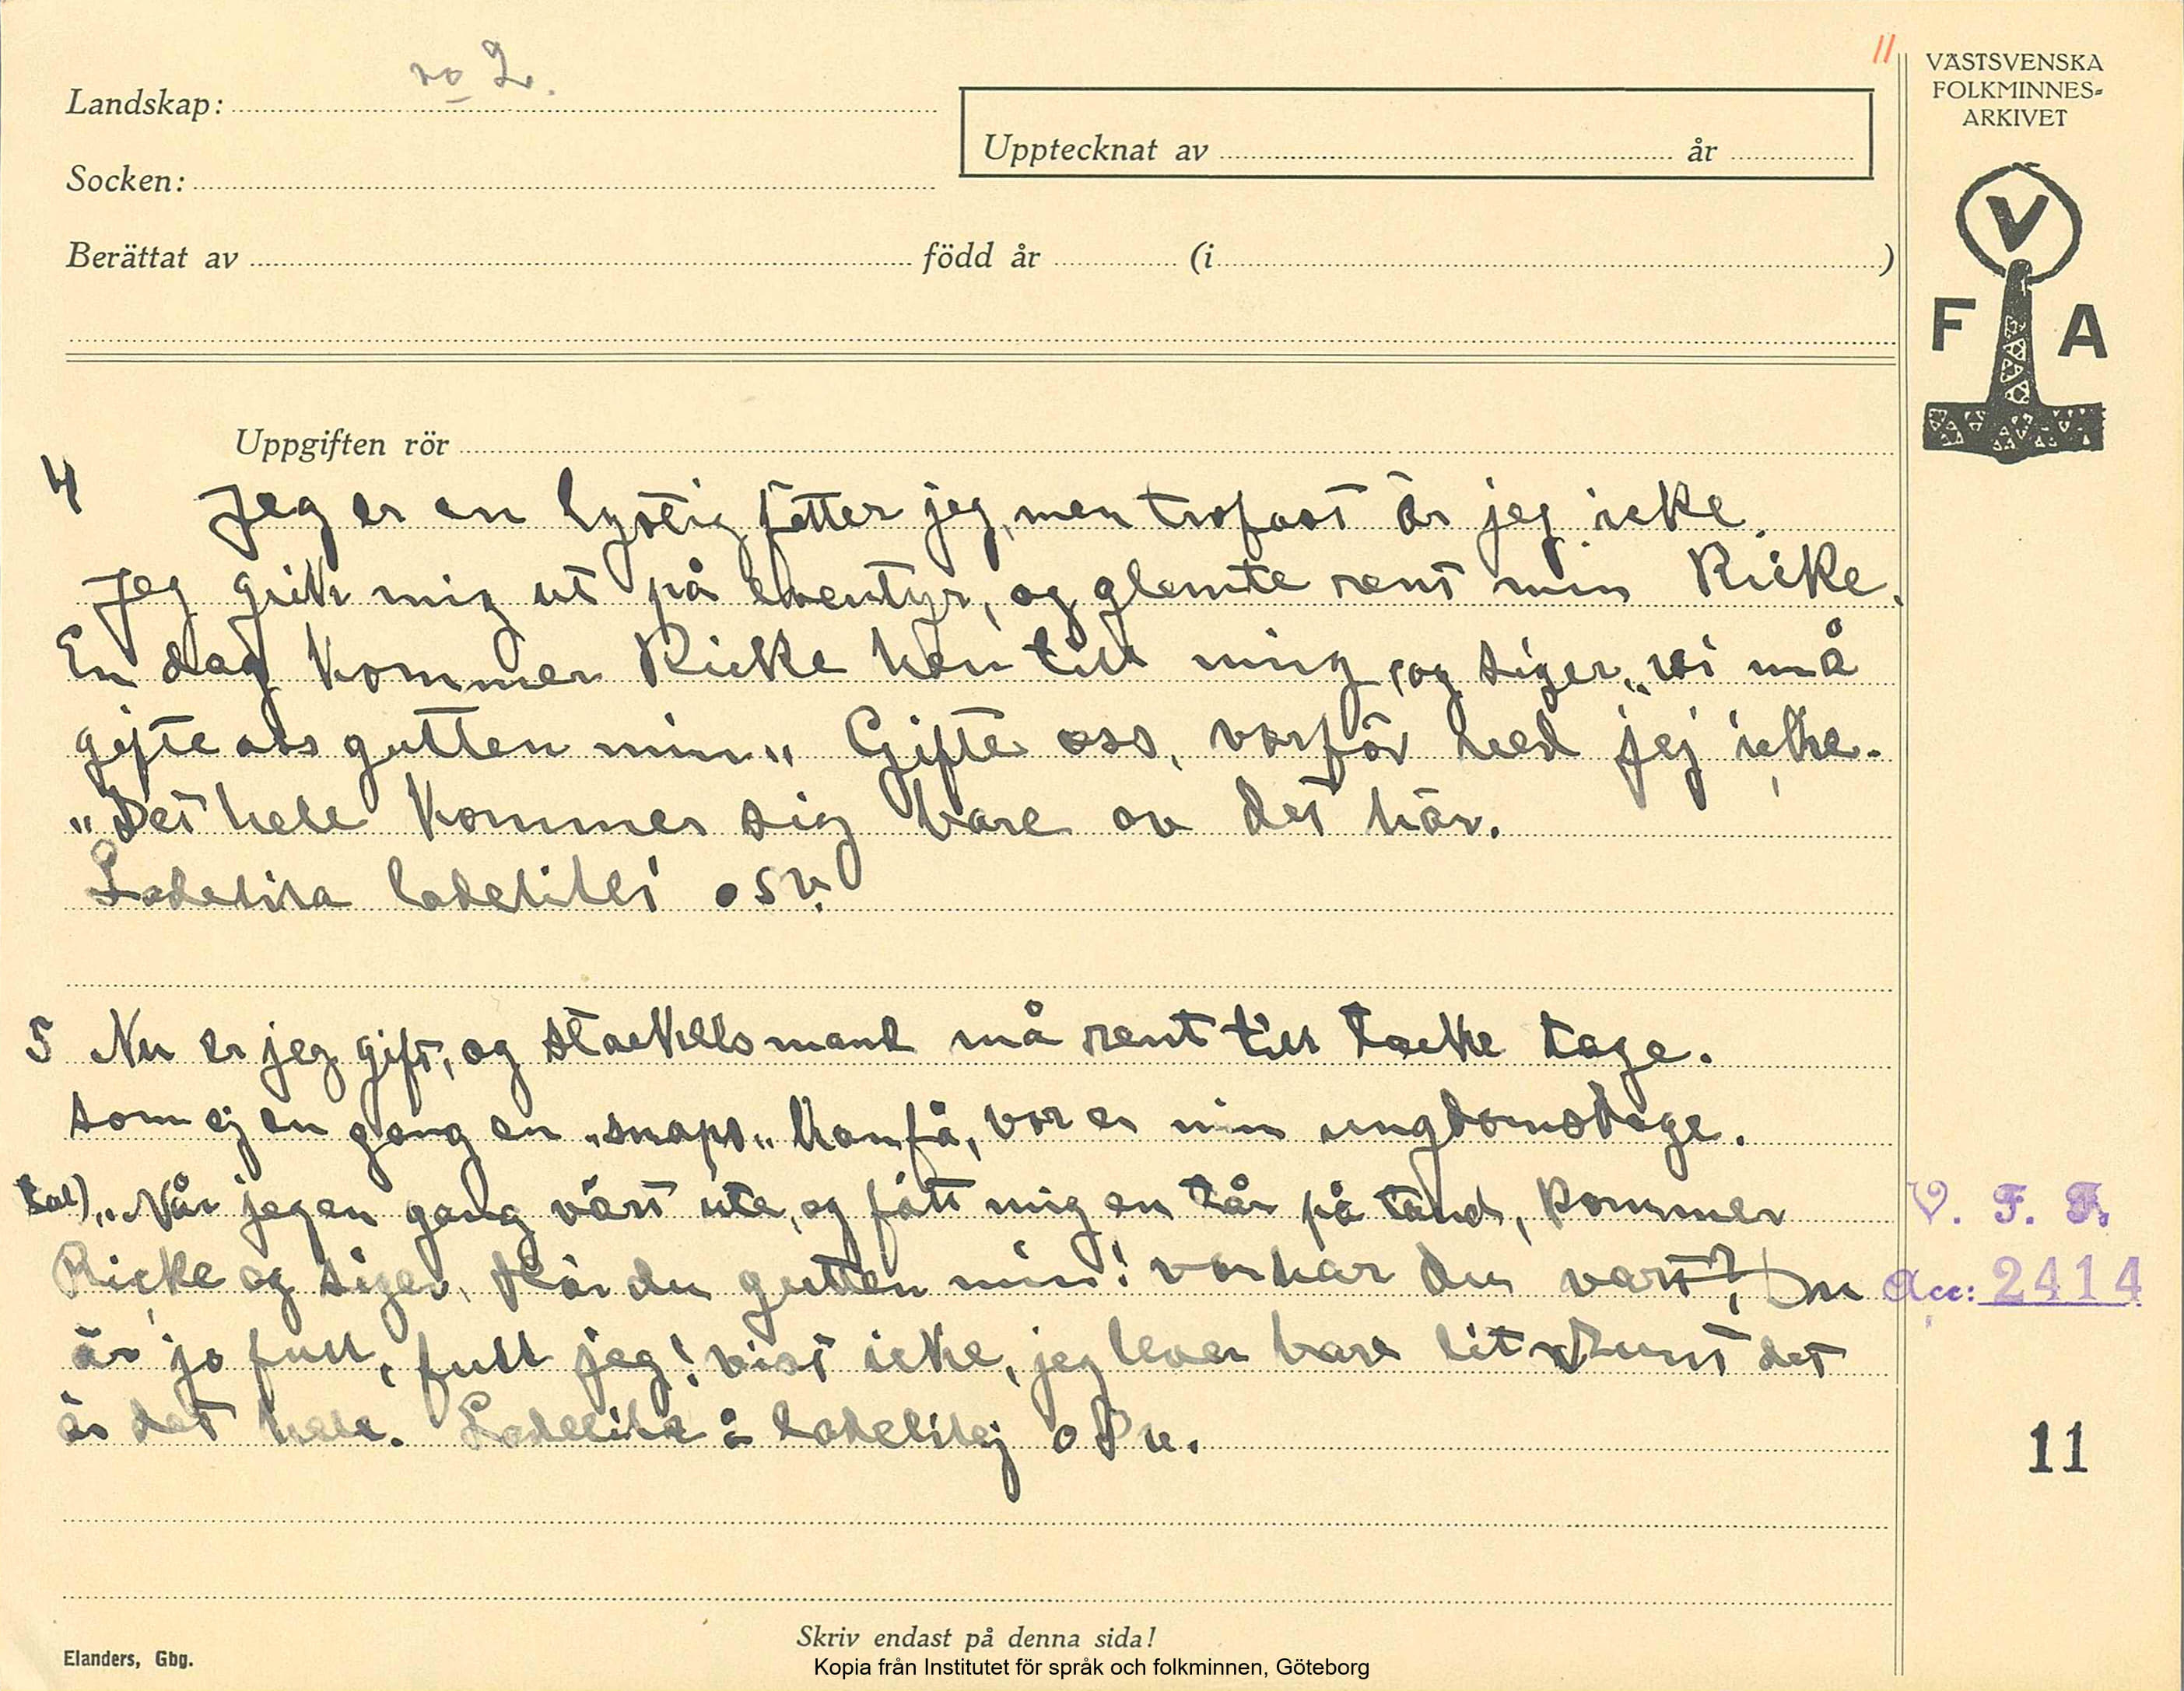 no 2.
11
VÄSTSVENSKA
FOLKMINNES-
ARKIVET
Landskap:
Upptecknat av år
Socken:
Berättat av född år (i )
V
F A
Uppgiften rör
4 Jeg er en lystig fetter jeg, men trofast är jeg icke.
Jeg gick mig ut på eventyr, og glemte rent min Ricke.
En dag kommer Ricke hen till mig, og siger „vi må
gifte oss gutten min„ Gifte oss, varför ved jej icke.
„Det hele kommer sig bare av det här.
Ladelita ladelilei osv.
5 Nu er jeg gift, og stackells mand må rent till tacke tage.
som ej en gang en „snaps„ kan få, vor er min ungdomsdage.
tal) „Når jeg en gang värt ute, og fått mig en tår på tand, kommer
Ricke og siger, Hör du gutten min! vor har du vart? Du
är jo full, full jeg! vist icke, jeg lever bare lit det
är det hele. Ladelita å ladelilej osv.
V. F. F.
Acc: 2414
11
Skriv endast på denna sida!
Elanders, Gbg.
Kopia från Institutet för språk och folkminnen, Göteborg